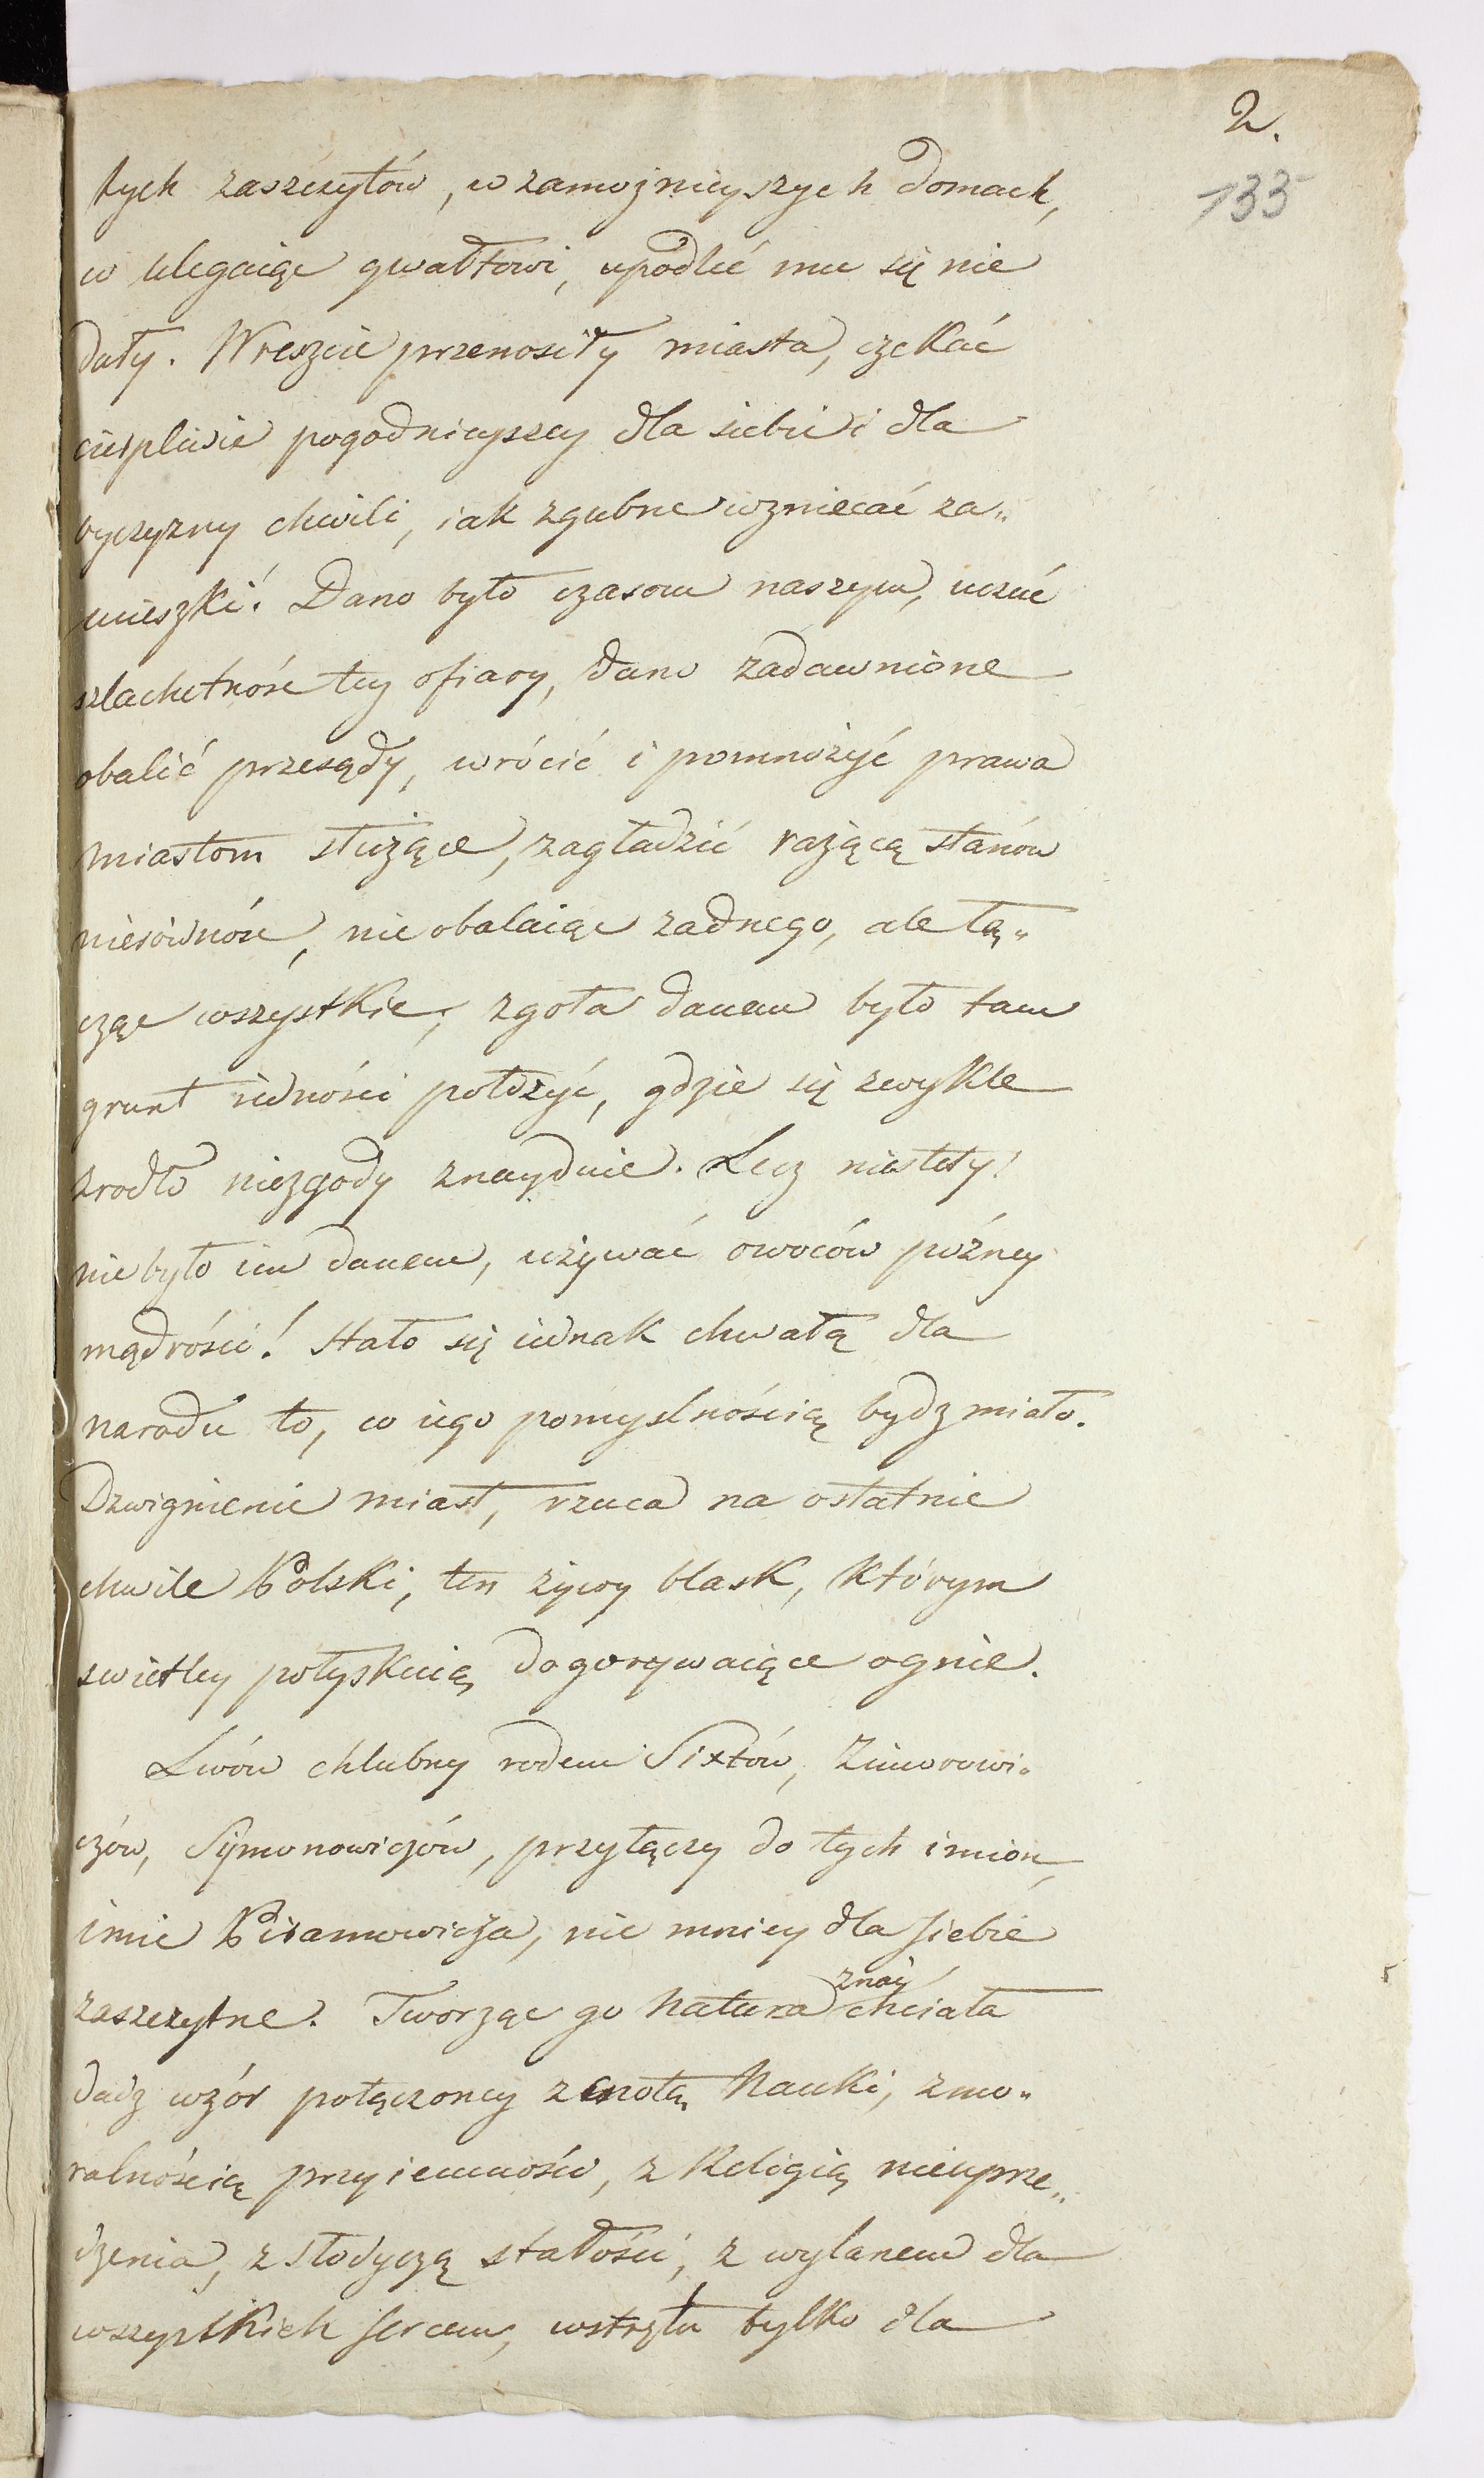 2.
133
tych zaszczytów, w zamożnieyszych domach,
w ulegaiąc gwałtowi, upodlić mu się nie
dały. Wreszcie przenosiły miasta, czekać
cierpliwie pogodnieyszey dla siebie i dla
oyczyzny chwili, iak zgubne wzniecać za„
mieszki! Dano było czasom naszym, uczuć
szlachetność tey ofiary, dano zadawnione
obalić przesądy, wrócić i pomnożyć prawa
miastom służące, zagładzić rażącą stanów
nierówność, nie obalaiąc żadnego, ale łą„
cząc wszystkie; zgoła danem było tam
grunt iedności położyć, gdzie się zwykle
zrodło niezgody znayduie. Lecz niestety!
nie było im danem, używać owoców późney
mądrości! Stało się iednak chwałą dla
narodu to, co iego pomyslnością bydz miało.
Dzwignienie miast, rzuca na ostatnie
chwile Polski, ten żywy blask, którym
swietley połyskuią dogorywaiące ognie.
Lwów chlubny rodem Sixtów, Zimorowi„
czów, Symonowiczów, przyłączy do tych imion,
imie Piramowicza, nie mniey dla siebie
znać
zaszczytne. Tworząc go Natura chciała
dadz wzór połączoney z cnotą Nauki, z mo„
ralnością przyiemności, z Religią nieuprze„
dzenia, z słodyczą stałości, z wylanem dla
wszystkich sercem, wstrętu tylko dla